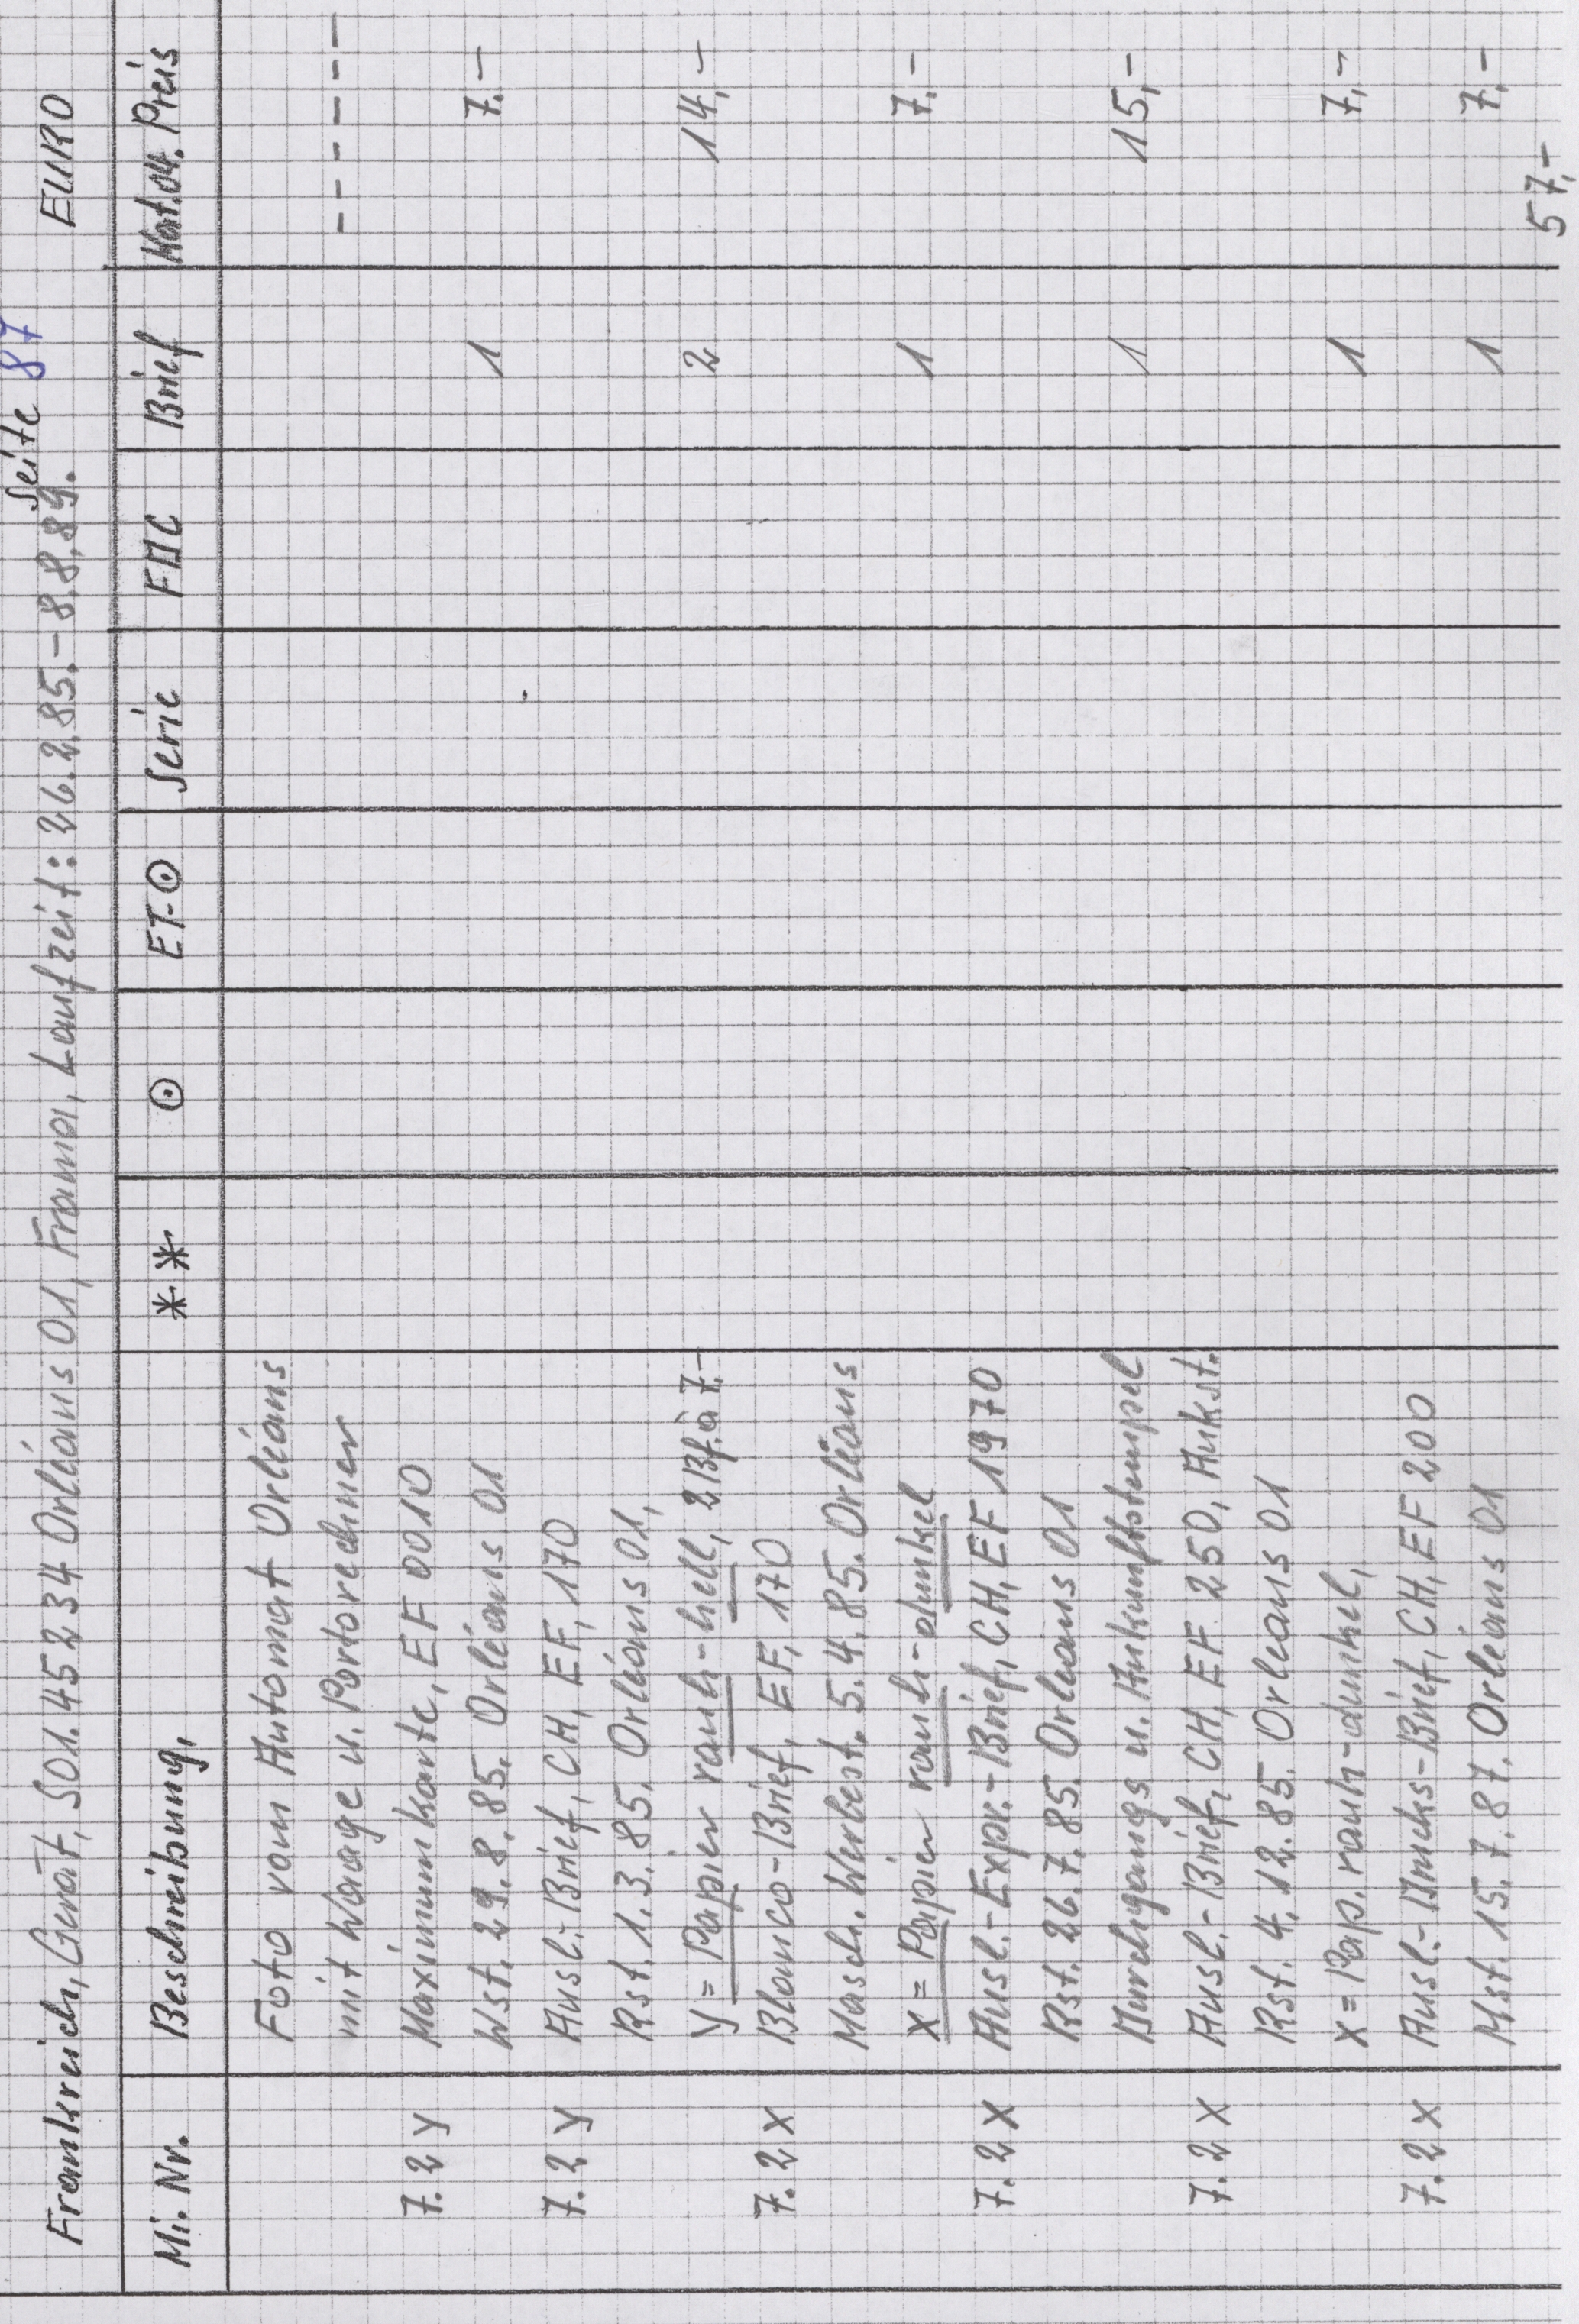 Seite 87
Frankreich, Gerät, S01.45234 Orléans 01, Frama, Laufzeit: 26.2.85.-8.8.89. EURO
Mi. Nr. Beschreibung, ** ⊙ ET-⊙ Serie FDC Brief Kat.04. Preis
Foto vom Automat Orléans
mit Waage u. Portorechner - - - - - -
7.2 y Maximumkarte, EF 0010
Wst. 29.8.85. Orléans 01 1 7.-
7.2 y Ausl.-Brief, CH, EF, 170
Rst. 1.3.85. Orléans 01,
y = Papier rauh-hell, 2 Bf. à 7.- 2 14,-
7.2 x Blanco-Brief, EF, 170
Masch. Werbest. 5.4.85. Orléans
x = Papier rauh-dunkel 1 7.-
7.2 x Ausl.-Expr.-Brief, CH, EF 1970
Rst. 26.7.85. Orléans 01
Durchgangs u. Ankunftstempel 1 15,-
7.2 x Ausl.-Brief, CH, EF 250, Ankst.
Rst. 4.12.85. Orleans 01
x = Pap. rauh-dunkel, 1 7,-
7.2 x Ausl.-Drucks-Brief, CH, EF 200
Mst. 15.7.87. Orléans 01 1 7,-
57,-